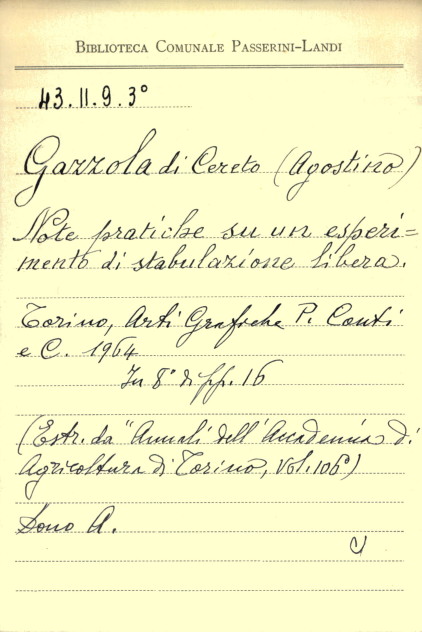 BIBLIOTECA COMUNALE PASSERINI-LANDI
43.II.9.3°
Gazzola di Cereto (Agostino)
Note pratiche su un esperi=
mento di stabulazione libera.
Torino, Arti Grafiche P. Conti
e C. 1964
In 8° di pp. 16
(Estr. da "Annali dell'Accademia di
Agricoltura di Torino, vol. 106°)
Dono A.